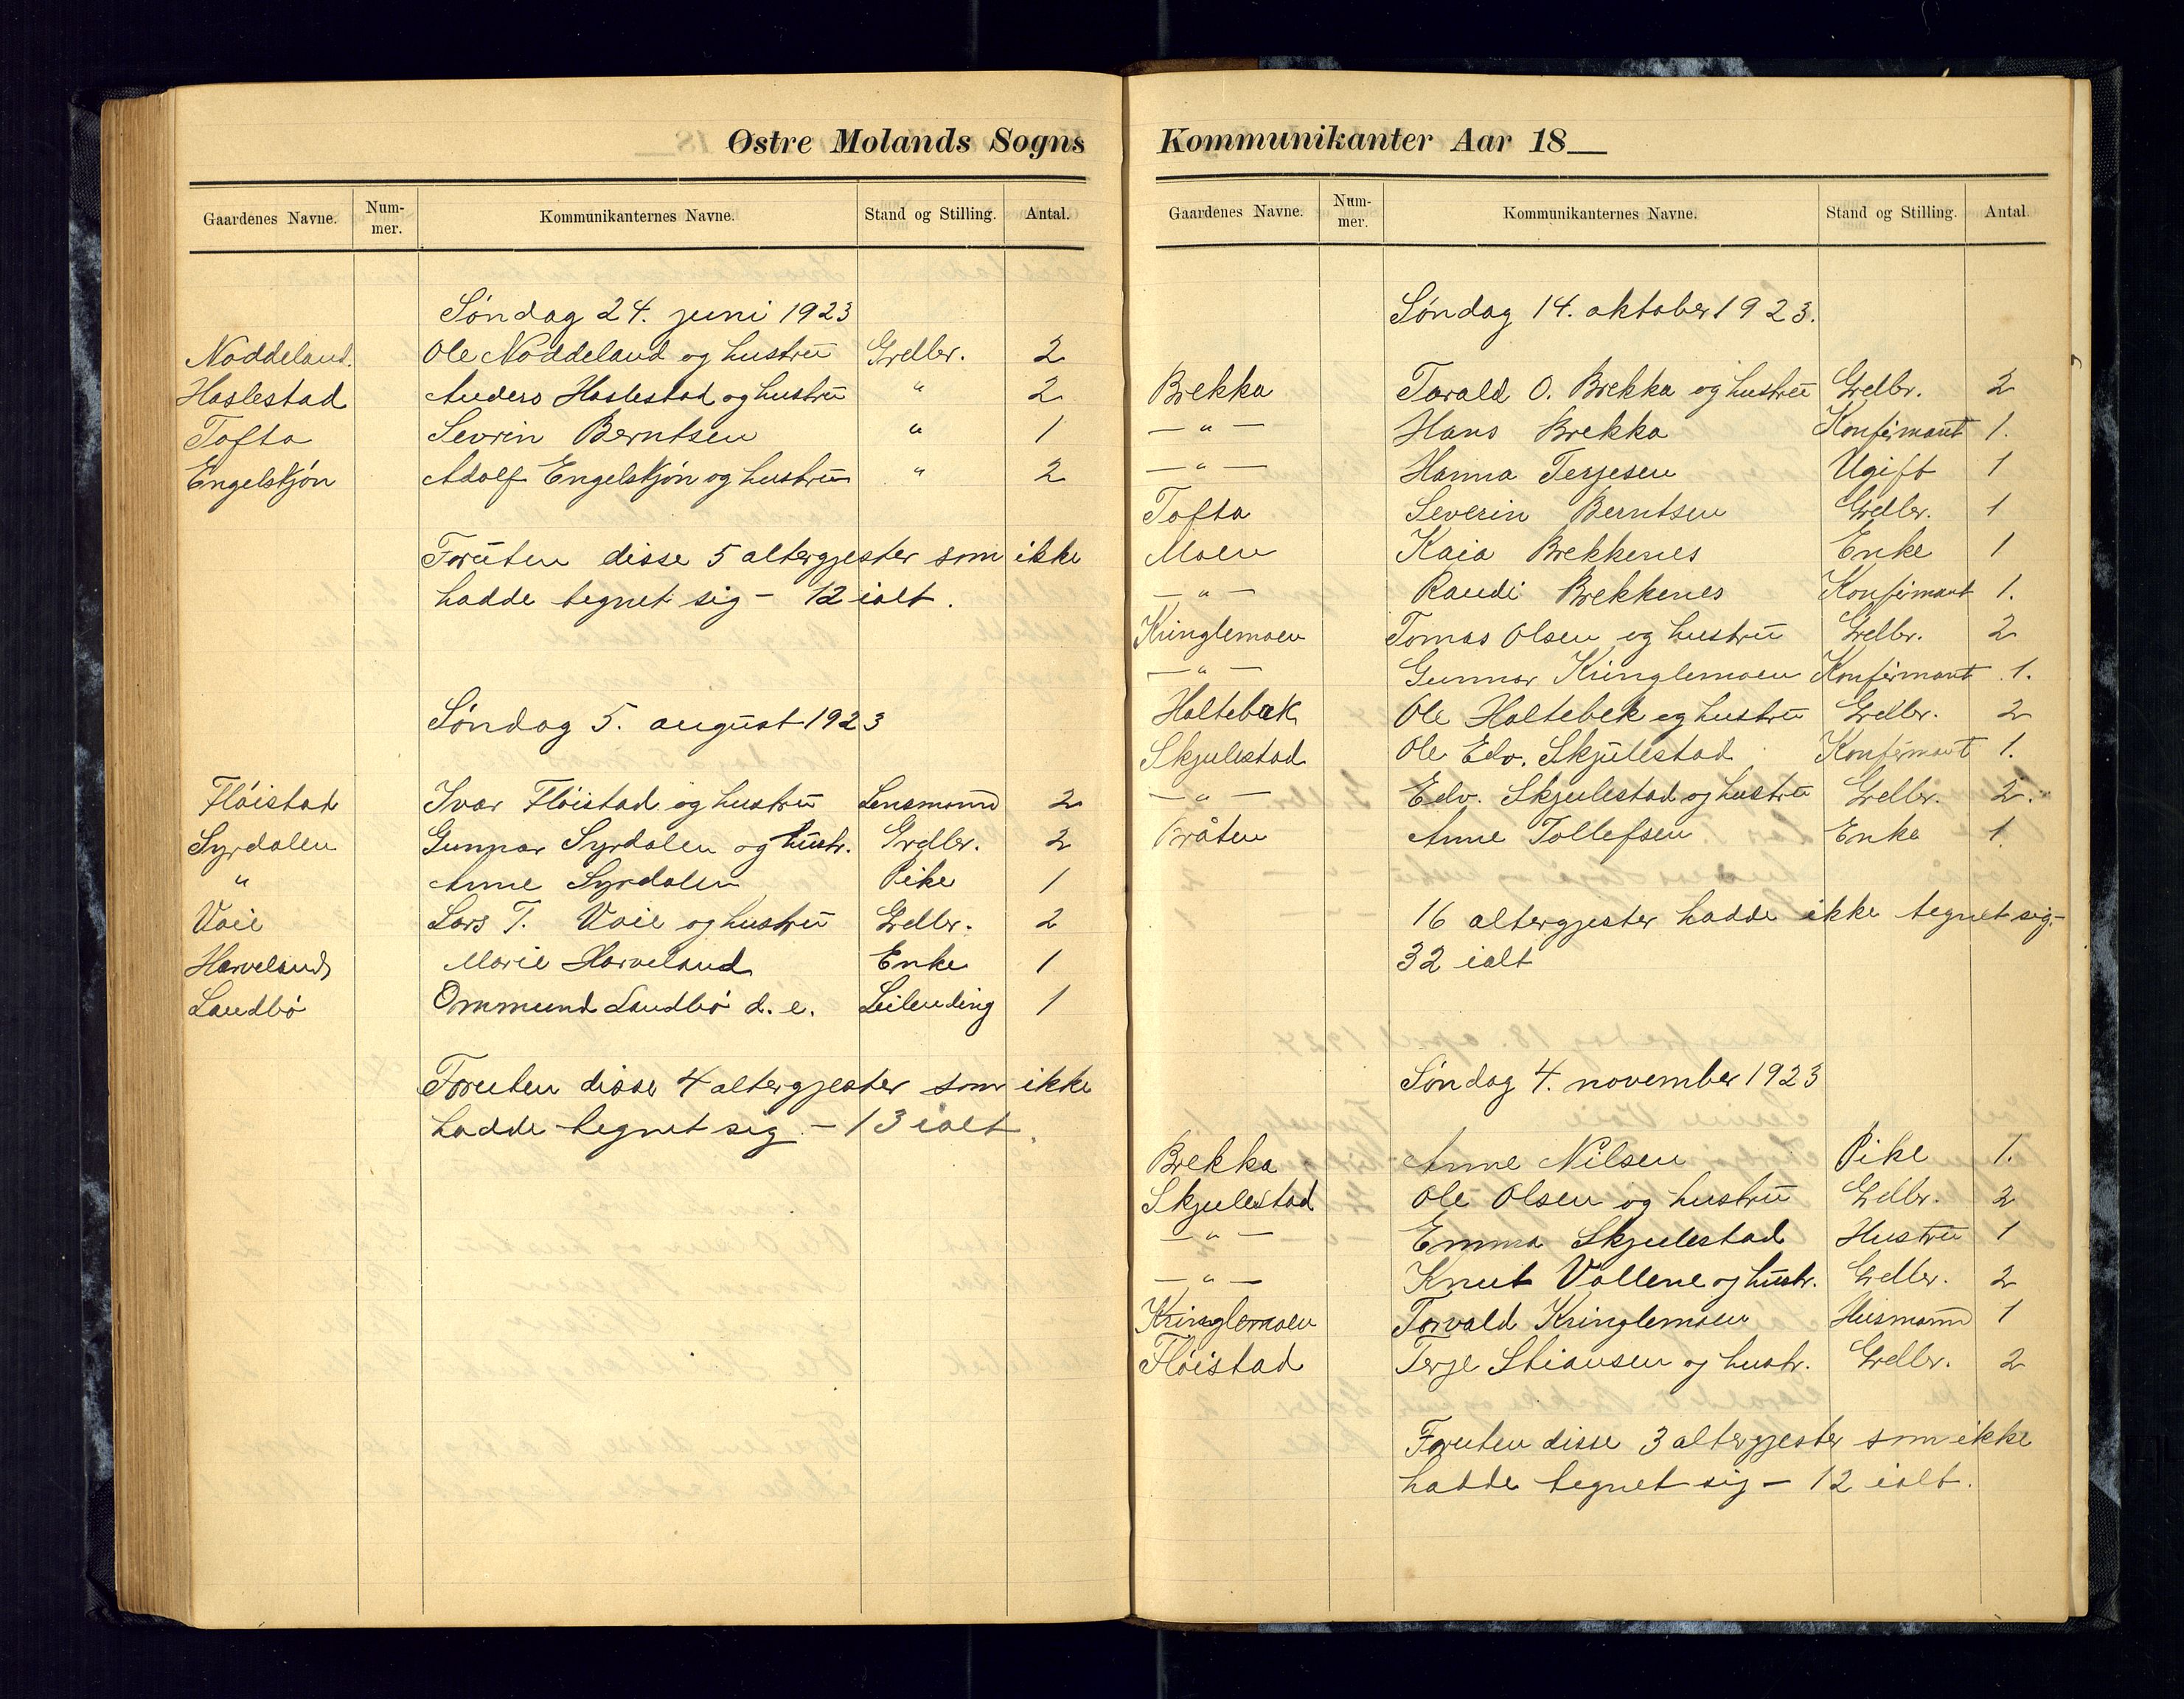 Østre Molands Sogns
Gaardenes Navne. Num-mer. Kommunikanternes Navne. Stand og Stilling. Antal.
Søndag 24. juni 1923
Noddeland. Ole Noddeland og hustru Grdbr. 2
Haslestad Anders Haslestad og hustru " 2
Tofta Sevrin Berntsen " 1
Engelskjøn Adolf Engelskjøn og hustru " 2
Foruten disse 5 altergjester som ikke
hadde tegnet sig - 12 ialt.
Søndag 5. august 1923
Fløistad Ivar Fløistad og hustru Lensmann 2
Syrdalen Gunnar Syrdalen og hustr. Grdbr. 2
" Anne Syrdalen Pike 1
Vaie Lars T. Vaie og hustru Grdbr. 2
Harveland Marie Harveland Enke 1
Landbø Ommund Landbø d. e. Leilending 1
Foruten disse 4 altergjester som ikke
hadde tegnet sig. - 13 ialt.
Kommunikanter Aar 18__
Gaardenes Navne. Num-mer. Kommunikanternes Navne. Stand og Stilling. Antal.
Søndag 14. oktober 1923.
Brekka Tarald O. Brekka og hustru Grdbr. 2
— " — Hans Brekka Konfirmant 1.
— " — Hanna Terjesen Ugift 1
Tofta Severin Berntsen Grdbr. 1
Moen Kaia Brekkenes Enke 1
— " — Randi Brekkenes Konfirmant 1.
Kringlemoen Tomas Olsen og hustru Grdbr. 2
— " — Gunnar Kringlemoen Konfirmant 1.
Holtebek Ole Holtebek og hustru Grdbr. 2
Skjulestad Ole Edv. Skjulestad Konfirmant 1.
— " — Edv. Skjulestad og hustru Grdbr. 2.
Bråten Anne Tollefsen Enke 1.
16 altergjester hadde ikke tegnet sig-
32 ialt
Søndag 4. november 1923
Brekka Anne Nilsen Pike 1.
Skjulestad Ole Olsen og hustru Grdbr. 2
— " — Emma Skjulestad Hustru 1
— " — Knut Vollene og hustr. Grdbr. 2
Kringlemoen Torvald Kringlemoen Husmann 1
Fløistad Terje Stiansen og hustr. Grdbr. 2
Foruten disse 3 altergjester som ikke
hadde tegnet sig - 12 ialt.